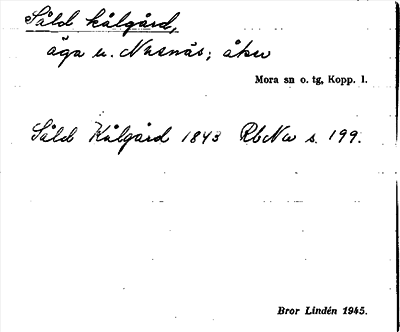 Såld kålgård,
äga u. Nusnäs; åker
Mora sn o. tg, Kopp. l.
Såld Kålgård 1843 RbNu s. 199.
Bror Lindén 1945.